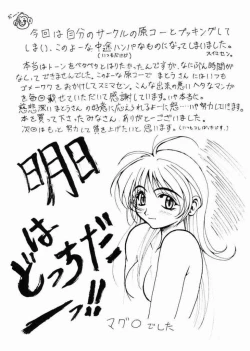 今回は自分のサークルの原コーとブッキングして
しまい、このよーな中途ハンパなものになってしまいました。
(いつもだけど) スイマセン。
本当はトーンもペタペタとはりたかったんですが、なにぶん時間が
なくてできませんでした。このよーな原コーでまとうさんにはいつも
ゴメーワクをおかけしてスミマセン。こんな出来の悪いヘタなマンガ
を毎回載せていただいて感謝しています。
本を買って下さったみなさん、ありがとーございました。
次回はも、努力して描き上げたいと思います。
明日
は
どっちだ
ーっ!!
マグロでした